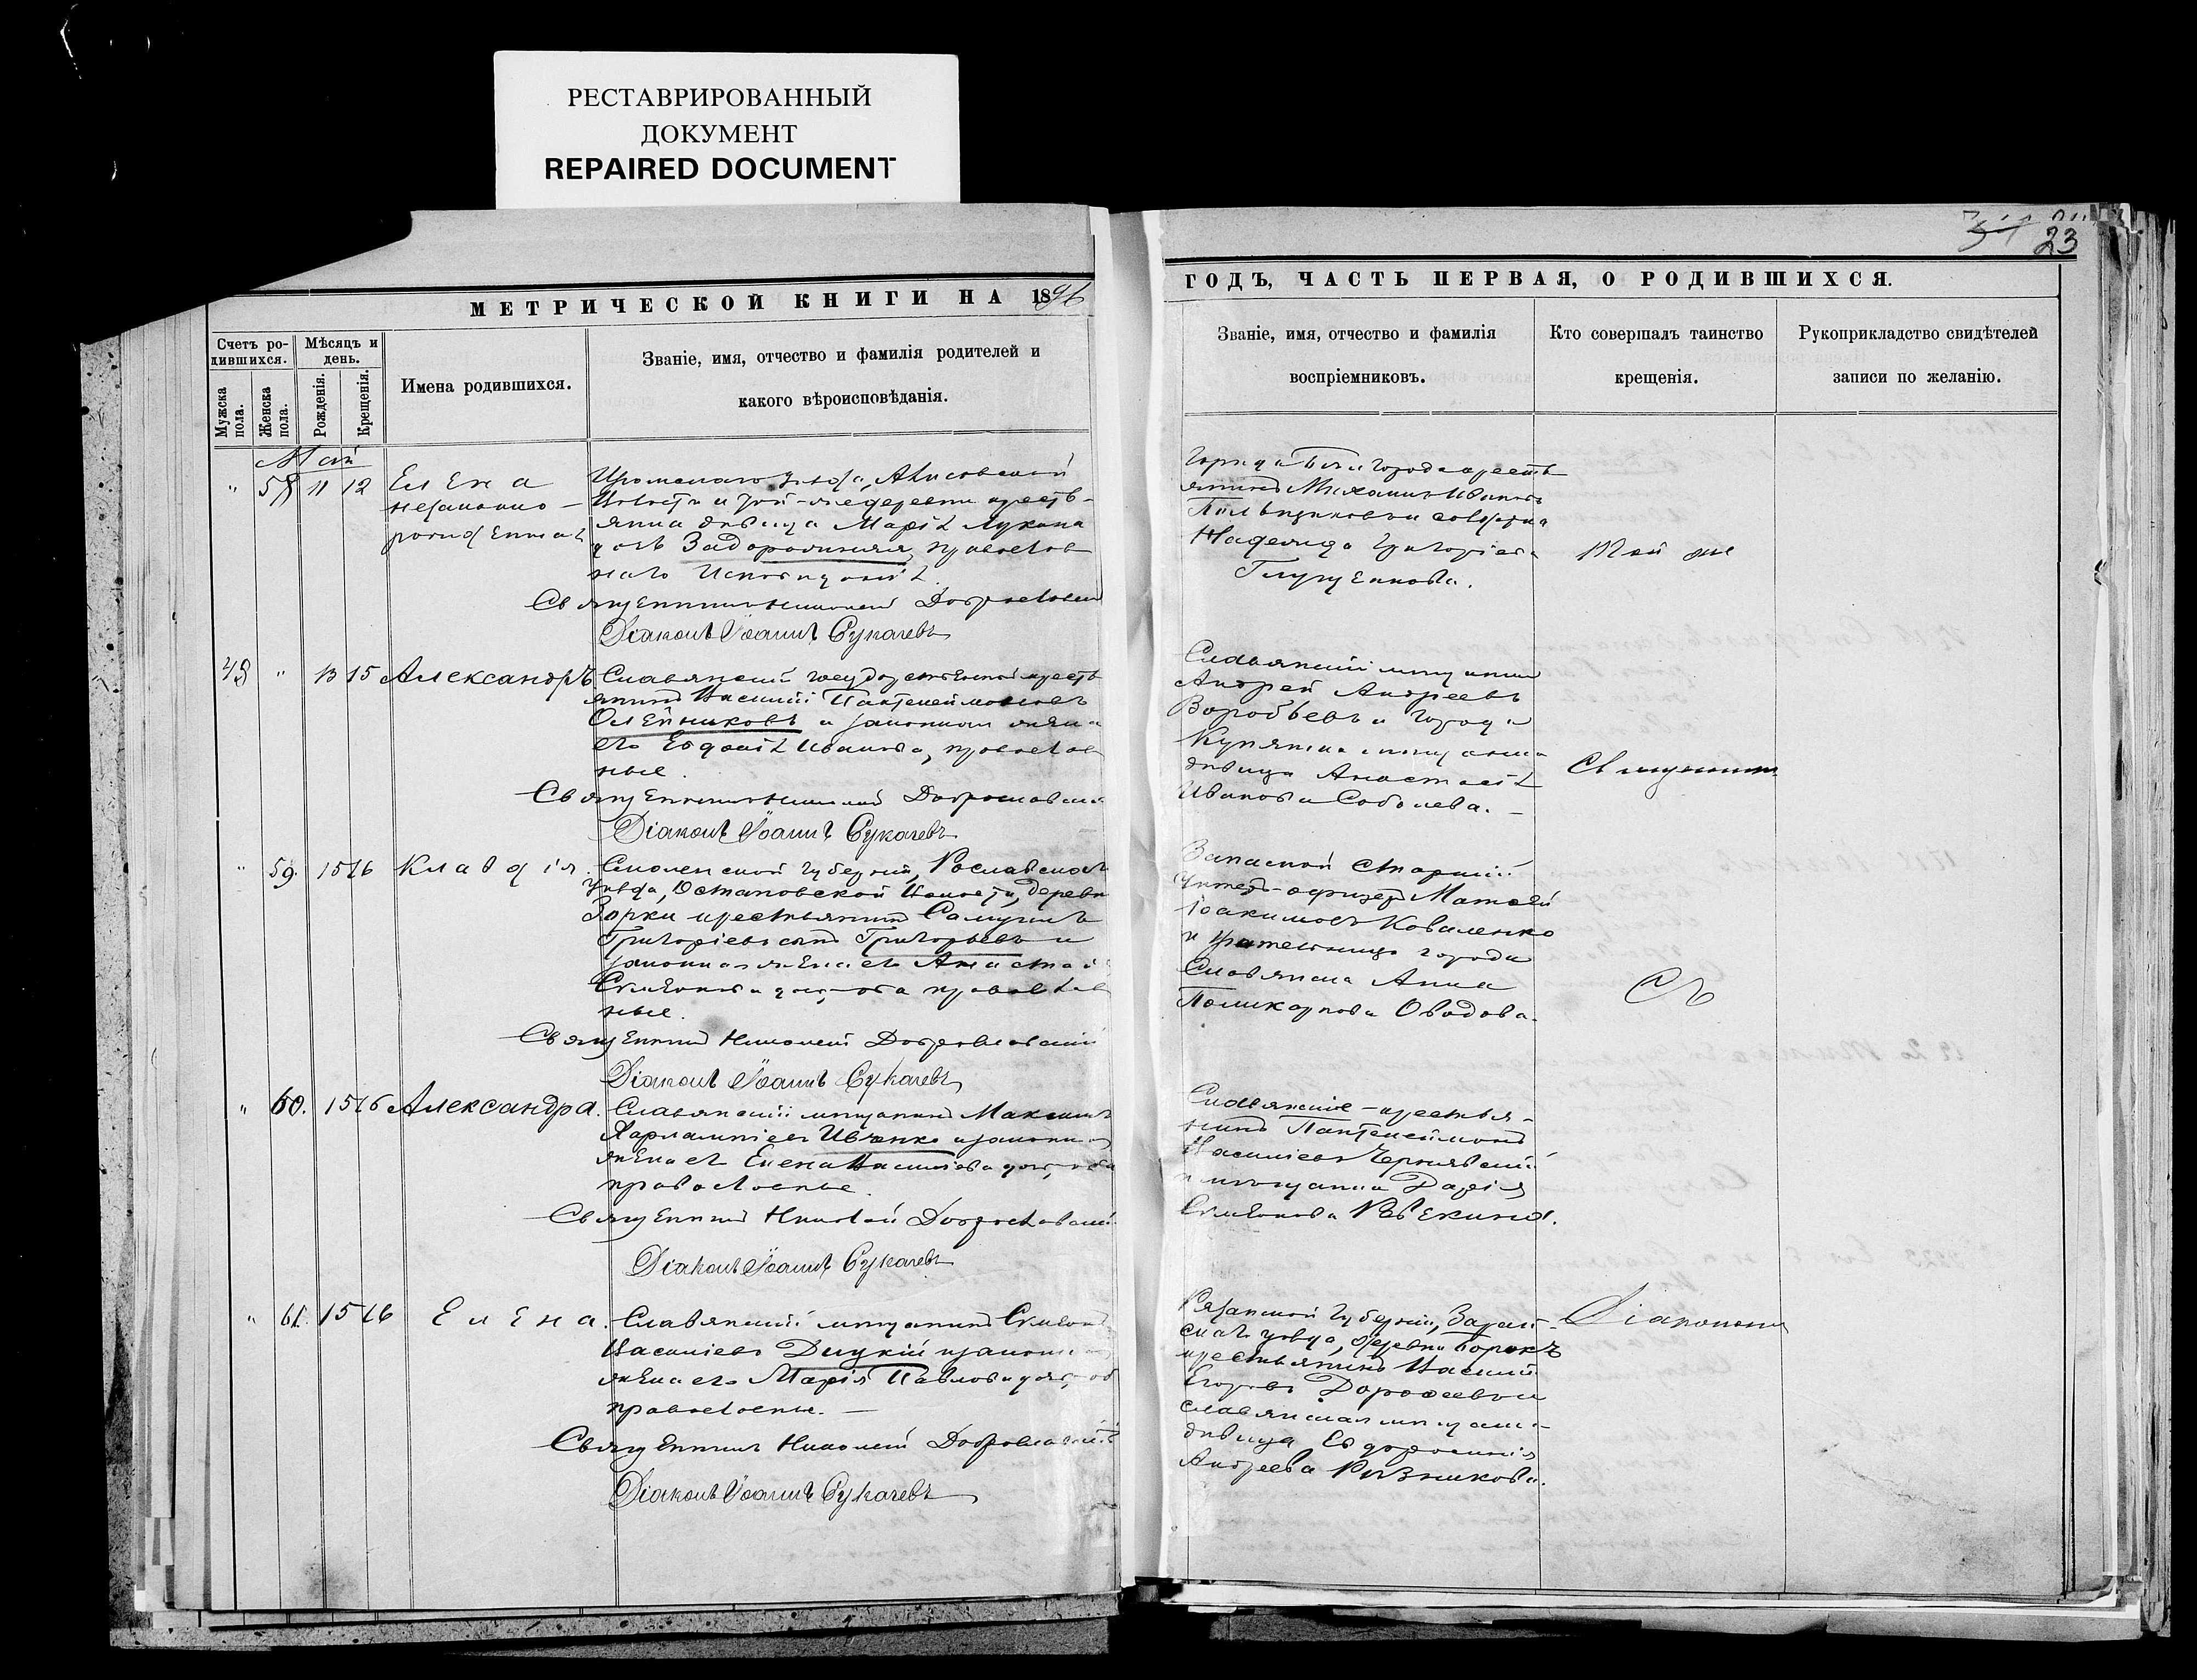 РЕСТАВРИРОВАННЫЙ
ДОКУМЕНТ
REPAIRED DOCUMENT
23
МЕТРИЧЕСКОЙ КНИГИ НА 1896
ГОДЪ, ЧАСТЬ ПЕРВАЯ, О РОДИВШИХСЯ.
Счетъ ро-
дившихся.
Мужска
пола.
Женска
пола.
Мѣсяцъ и
день.
Рожденія.
Крещенія.
Имена родившихся.
Званіе, имя, отчество и фамилія родителей и
какого вѣроисповѣданія.
Званіе, имя, отчество и фамилія
воспріемниковъ.
Кто совершалъ таинство
крещенія.
Рукоприкладство свидѣтелей
записи по желанію.
Май
" 58 11 12
Елена
незаконно-
рожденная
Изюмскаго уѣзда,
волости и
янка дѣвица Марія Лукина
дочь Задорожняя, православ
наго исповѣданія.
Священникъ Николай Доброславскій
Діаконъ Іоаннъ Сукачевъ
города Бѣлгорода кресть
янинъ Михаилъ Ивановъ
Надежда Григоріева
Глущенкова.
Той же
48 " 13 15
Александръ
Славянскій государственный кресть
янинъ Василій Пантелеймоновъ
Олейниковъ и законная жена
его Евдокія Иванова, православ
ные.
Священникъ Николай Доброславскій
Діаконъ Іоаннъ Сукачевъ
Славянскій мѣщанинъ
Андрей Андреевъ
Воробьевъ и города
Купянска мѣщанка
дѣвица Анастасія
Иванова Соболева.
Священникъ
" 59. 15 16
Клавдія.
Смоленской губерніи, Рославскаго
уѣзда, Остаповской волости, деревни
Зорки крестьянинъ Самуилъ
Григоріевъ сынъ Григорьевъ и
законная жена его Анастасія
Симеонова дочь, оба православ
ные.
Священникъ Николай Доброславскій
Діаконъ Іоаннъ Сукачевъ
Запасной старшій
унтеръ-офицеръ Матвѣй
Іоакимовъ Коваленко
и учительница города
Славянска Анна
Поликарпова Оводова.
" 60. 15 16
Александра.
Славянскій мѣщанинъ Максимъ
Харлампіевъ Ивченко и законная
жена его Елена Василіева дочь, оба
православные.
Священникъ Николай Доброславскій
Діаконъ Іоаннъ Сукачевъ
Славянскіе - крестья-
нинъ Пантелеймонъ
Василіевъ Чернявскій
и мѣщанка Дарія
Симеонова
" 61. 15 16
Елена.
Славянскій мѣщанинъ Симеонъ
Василіевъ Дицкій и законная
жена его Марія Павлова дочь, оба
православные.
Священникъ Николай Доброславскій
Діаконъ Іоаннъ Сукачевъ
Рязанской губерніи, Зарай-
скаго уѣзда, деревни Борокъ
крестьянинъ Василій
Егоровъ Дорофеевъ и
славянская мѣщан-
дѣвица Евдокія
Андреева Рѣзникова.